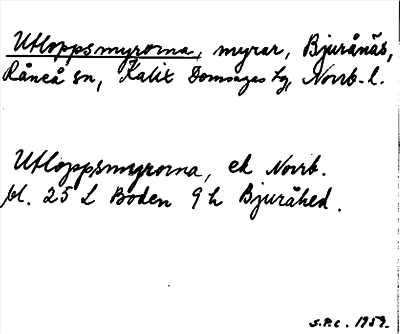 Utloppsmyrorna, myrar, Bjurånäs,
Råneå sn, Kalix Domsagas tg, Norrb. l.
Utloppsmyrorna, ek Norrb.
bl. 25 L Boden 9 h Bjuråhed.
S.P.C. 1959.